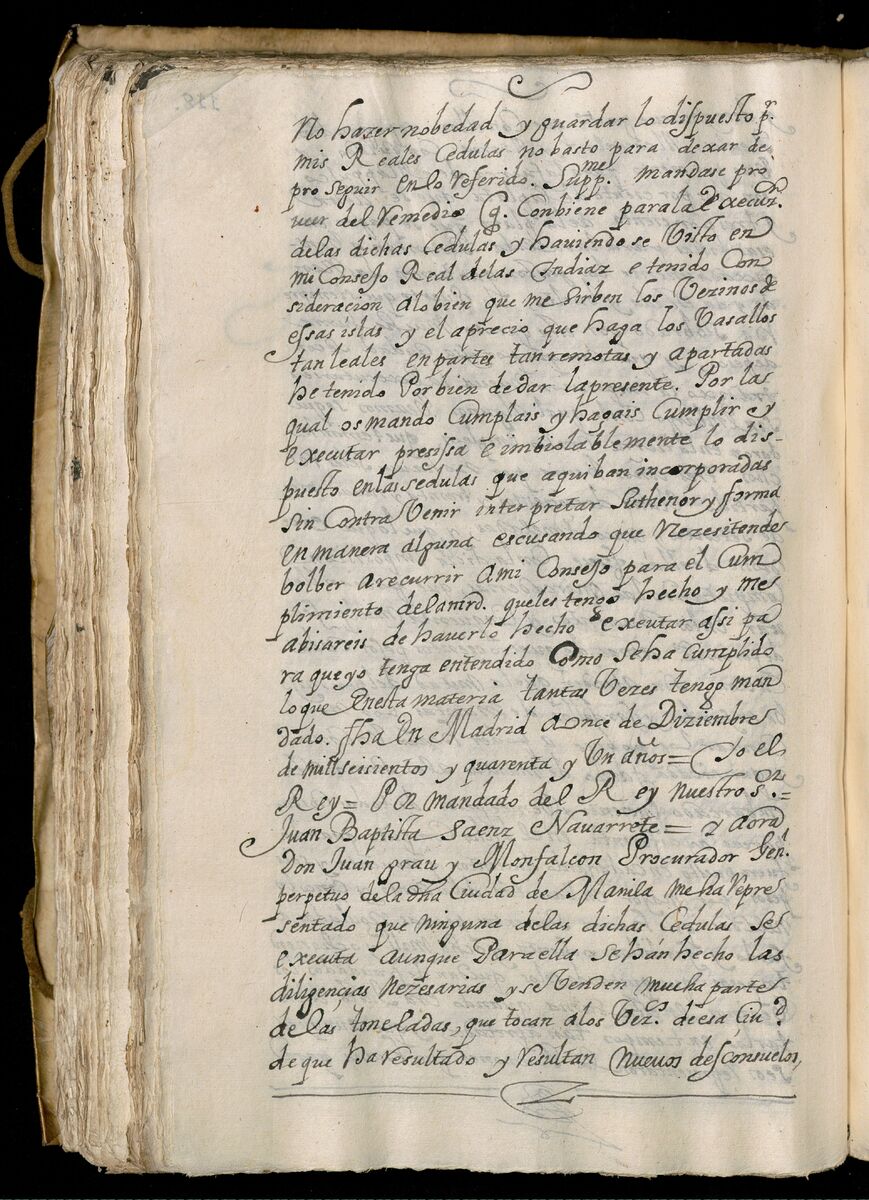 No hazer nobedad y guardar lo dispuesto pr.
mis Reales Cedulas no basto para dexar de
proseguir en lo referido. Suppme. mandase pro
veer del remedio q. Conbiene para la execuzn.
delas dichas Cedulas y haviendose Visto en
mi Consejo Real delas Indiaz e tenido Con
sideracion alobien que me Sirben los Vezinos de
essas islas y el aprecio que haga los Vasallos
tan leales en partes tan remotas y apartadas
he tenido Por bien de dar la presente. Por las
qual os mando Cumplais y hagais Cumplir y
executar presissa e imbiolablemente lo dis-
puesto en las sedulas que aqui ban incorporadas
Sin Contra Venir interpretar Su thenor y forma
en manera alguna escusando que Nezesitende
bolber a recurrir a mi Consejo para el Cum
plimiento dela mrd. que les tengo hecho y me
abisareis de haverlo hecho y exeutar assi pa
ra que yo tenga entendido Como Seha cumplido
lo que en esta materia tantas Vezes tengo man
dado. fha En Madrid a once de Diziembre
de mill seisientos y quarenta y Un años = Yo el
Rey = Por mandado del Rey nuestro Sor. =
Juan Baptista Saenz Navarrete = y aora
Don Juan grau y Monfalcon Procurador Genl.
perpetuo dela dha Ciudad de Manila me ha repre
sentado que ninguna delas dichas Cedulas se
executa aunque Para ella se hán hecho las
diligencias nezesarias y se Venden mucha parte
de las toneladas, que tocan alos Vezos. de esa Ciud.
de que ha resultado y resultan nuevos desconsuelos,